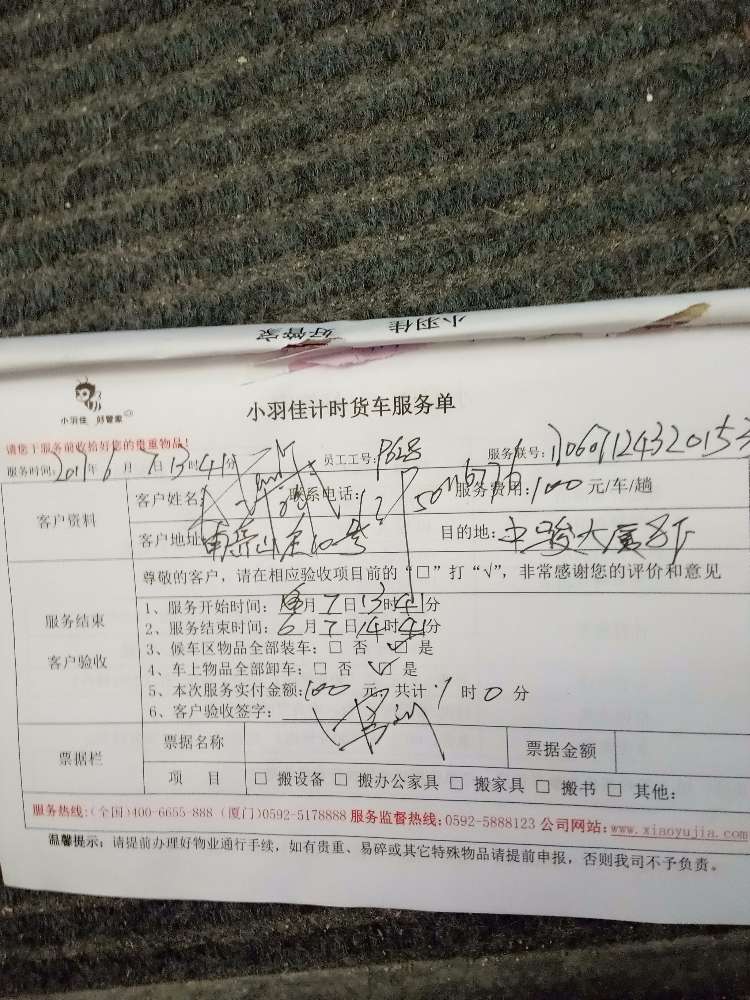 小羽佳 好管家
小羽佳 好管家
小羽佳计时货车服务单
请您于服务前收拾好您的贵重物品!
服务时间: 年6月7日13时41分 员工工号: 服务联号:
客户资料
客户姓名 联系电话: 服务费用:100元/车/趟
客户地址: 目的地:中骏大厦
尊敬的客户,请在相应验收项目前的“□”打“√”,非常感谢您的评价和意见
服务结束
客户验收
1、服务开始时间: 月7日13时41分
2、服务结束时间:6月7日14时41分
3、候车区物品全部装车:□ 否 ☑ 是
4、车上物品全部卸车:□ 否 ☑ 是
5、本次服务实付金额:100元,共计:1时0分
6、客户验收签字:
票据栏
票据名称 票据金额
项 目 □ 搬设备 □ 搬办公家具 □ 搬家具 □ 搬书 □ 其他:
服务热线:(全国)400-6655-888 (厦门)0592-5178888 服务监督热线:0592-5888123 公司网站:www.xiaoyujia.com
温馨提示:请提前办理好物业通行手续,如有贵重、易碎或其它特殊物品请提前申报,否则我司不予负责。